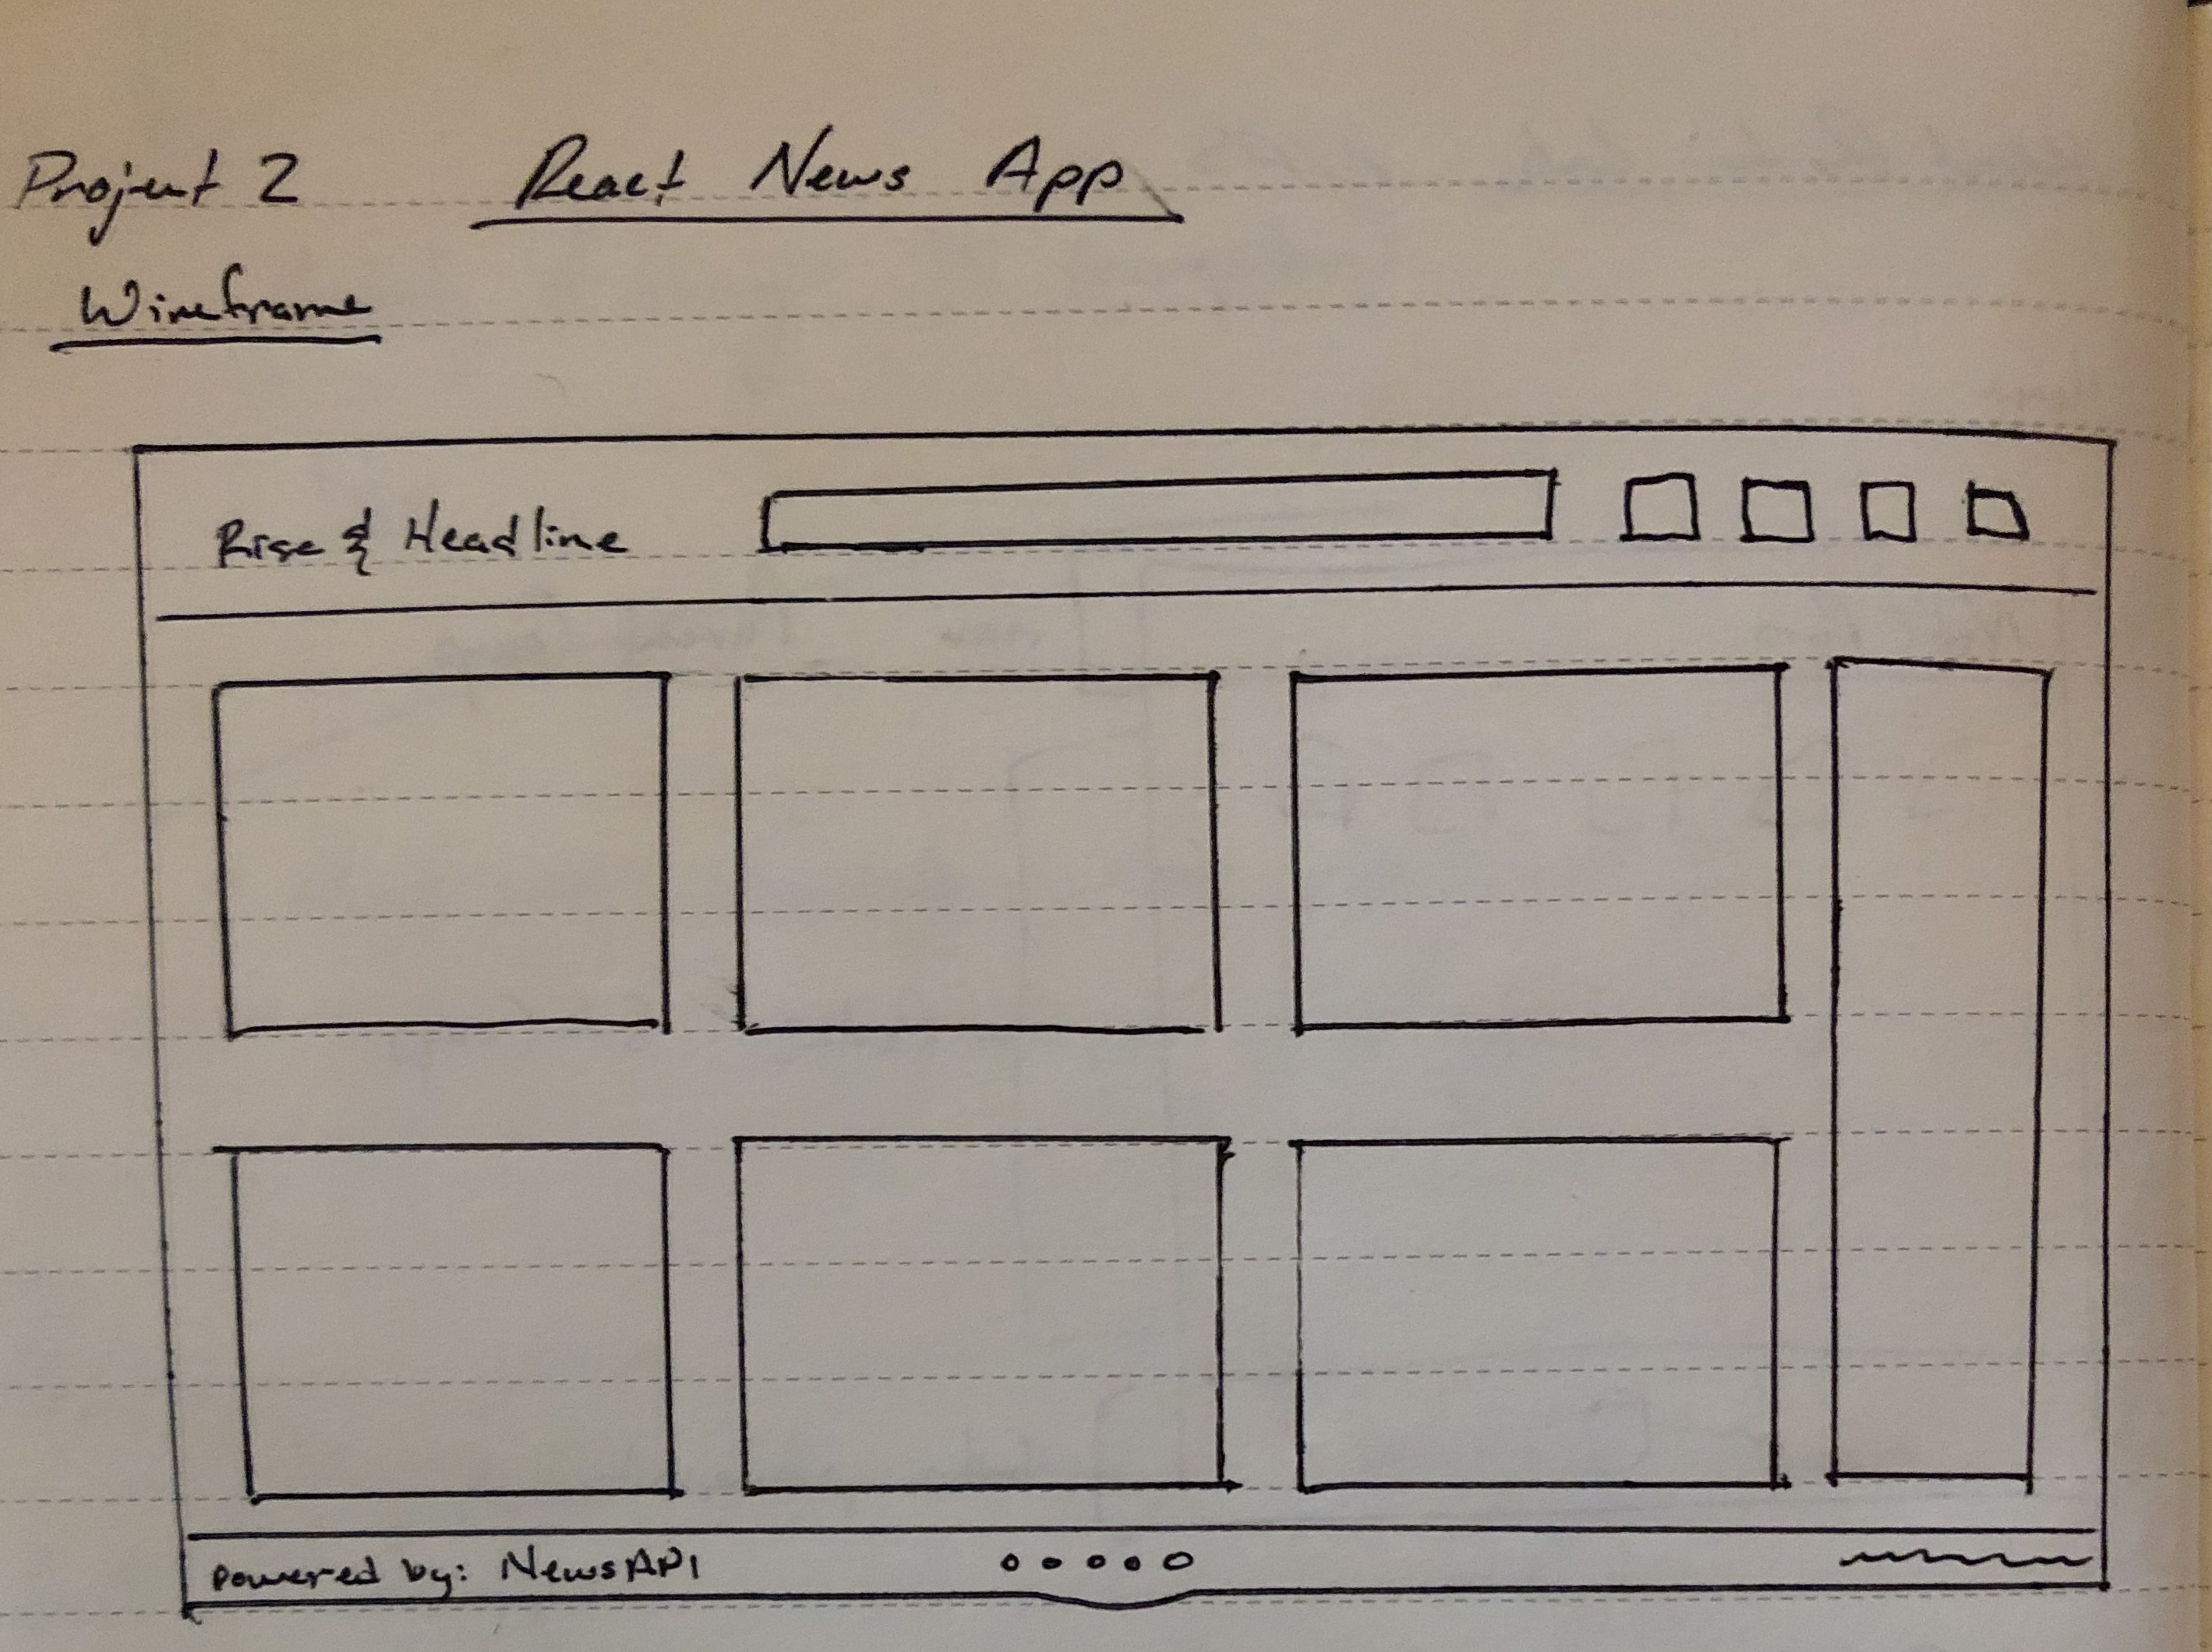 Project 2 React News App
Wireframe
Rise & Headline
Powered by: NewsAPI